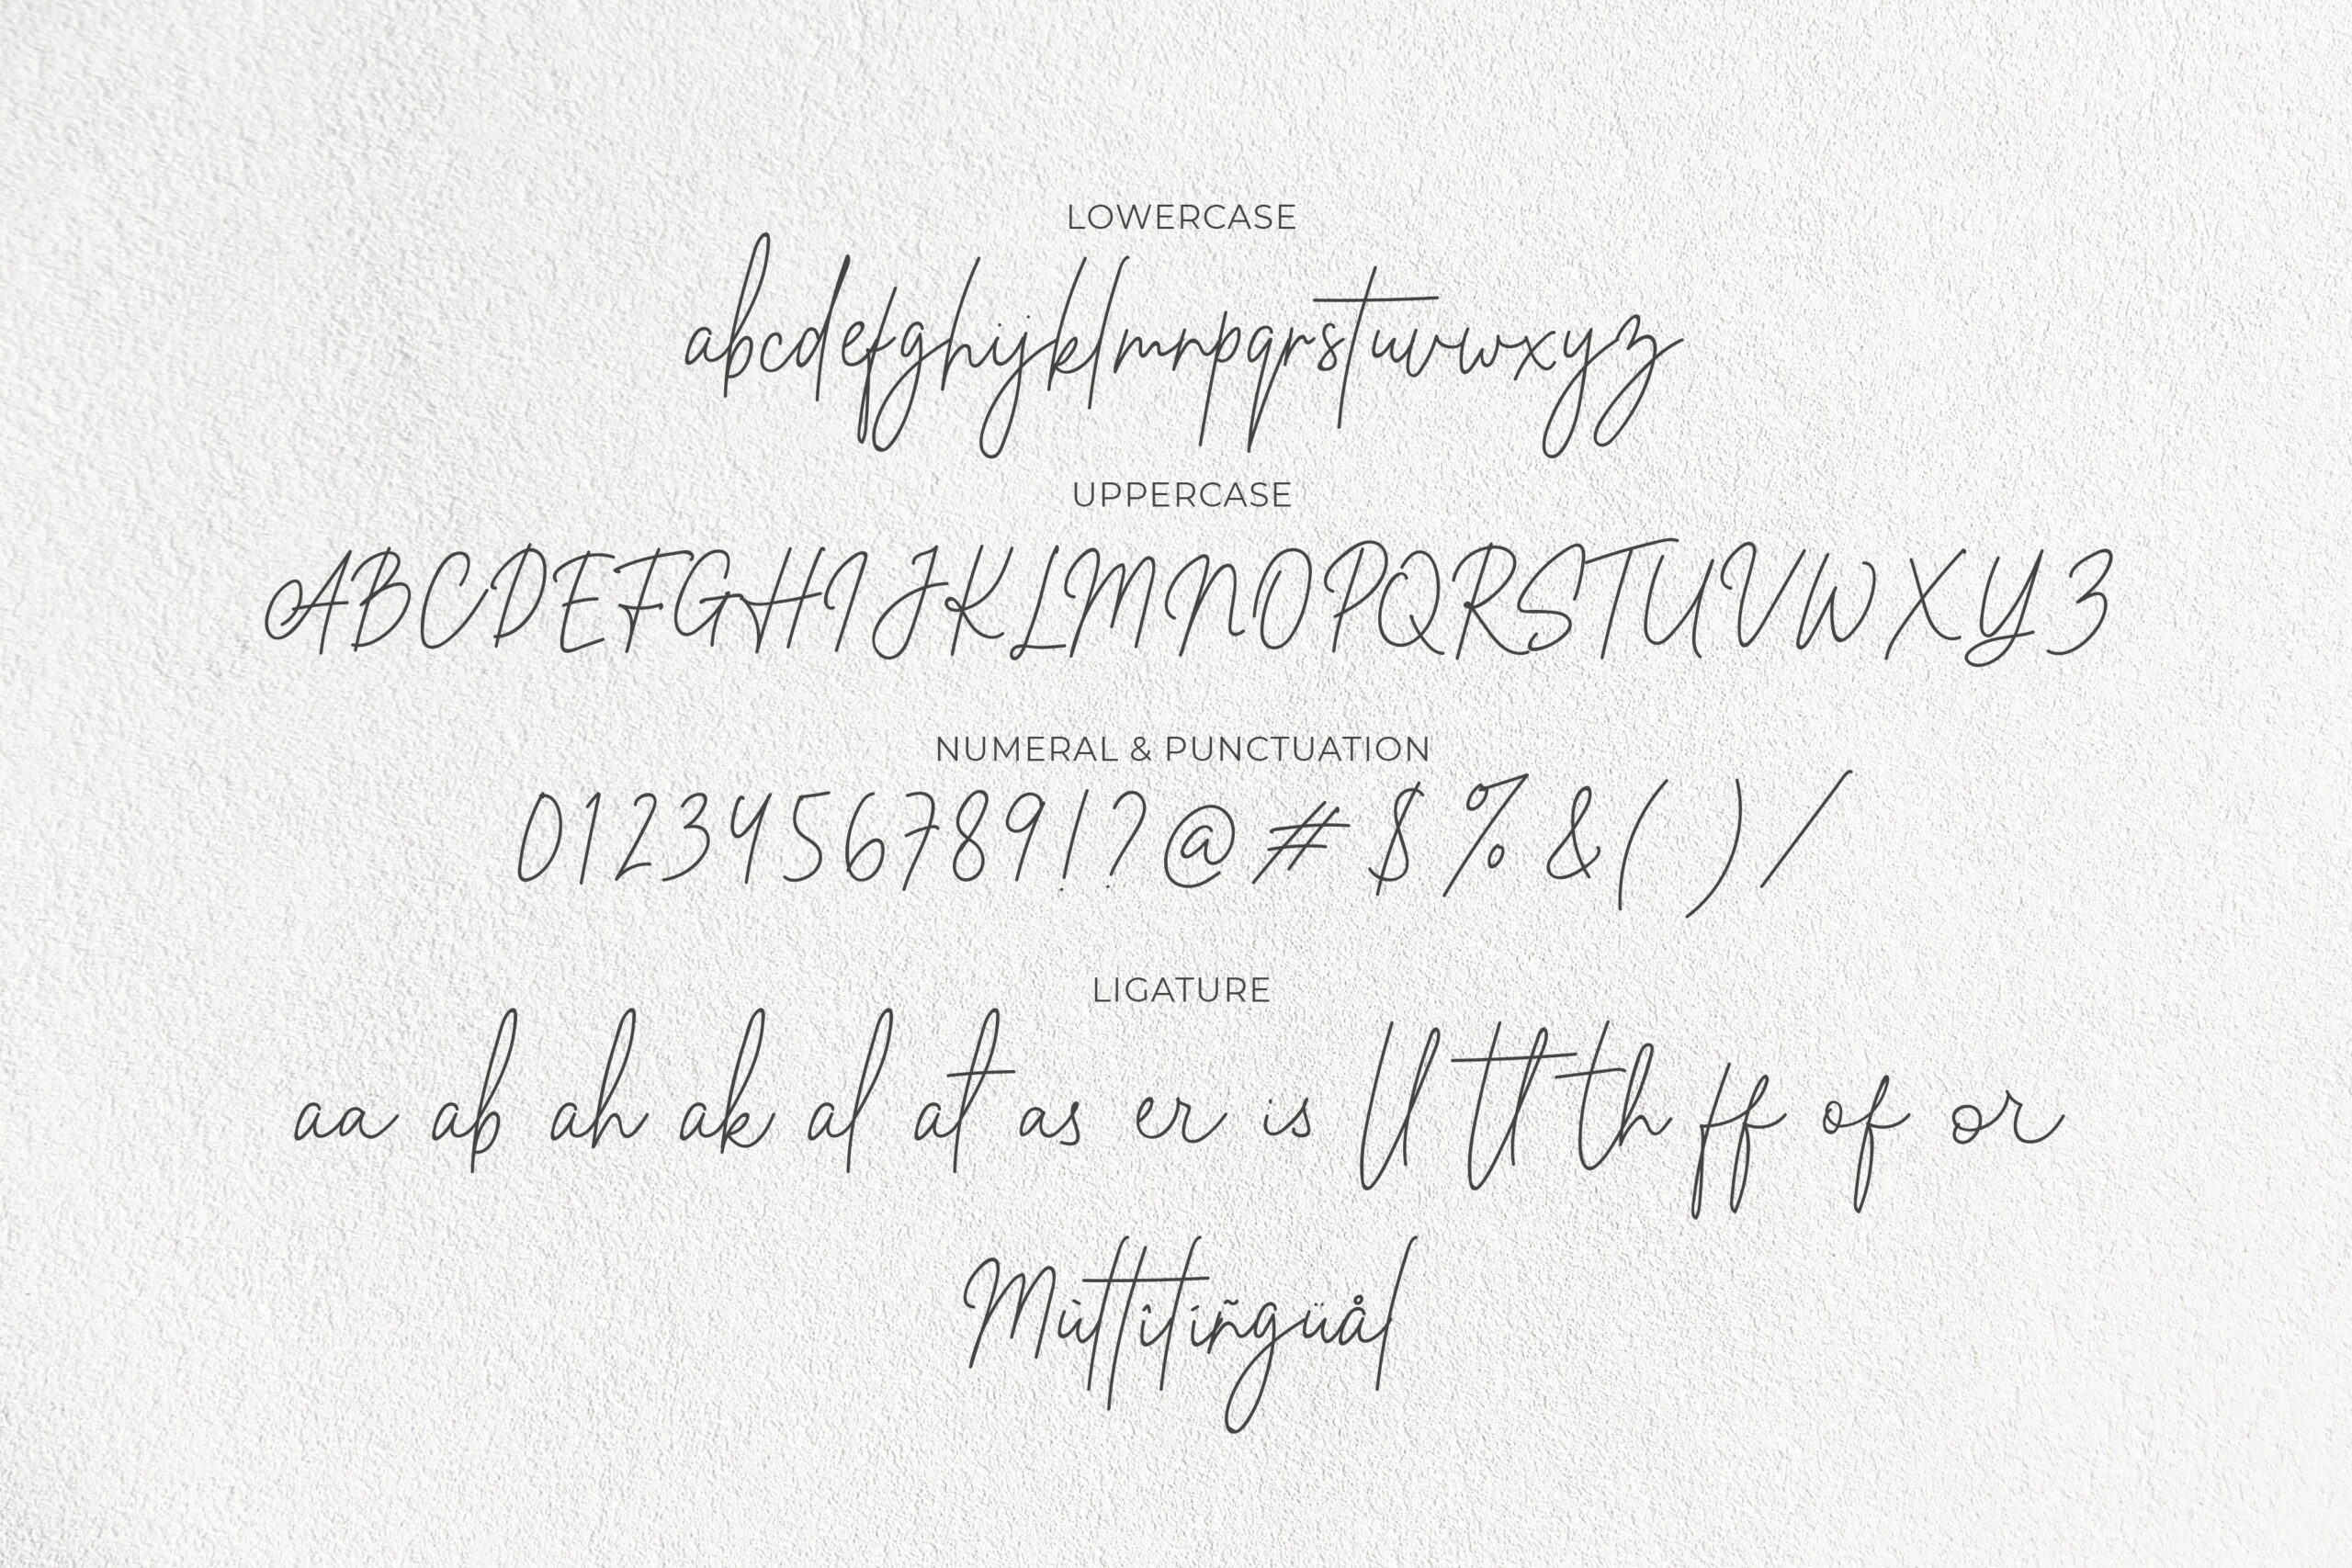 LOWERCASE
abcdefghijklmnpqrstuvwxyz
UPPERCASE
ABCDEFGHIJKLMNOPQRSTUVWXYZ
NUMERAL & PUNCTUATION
0123456789!?@#$%&()/
LIGATURE
aa ab ah ak al at as er is ll tt th ff of or
Mùltîlíñgüål